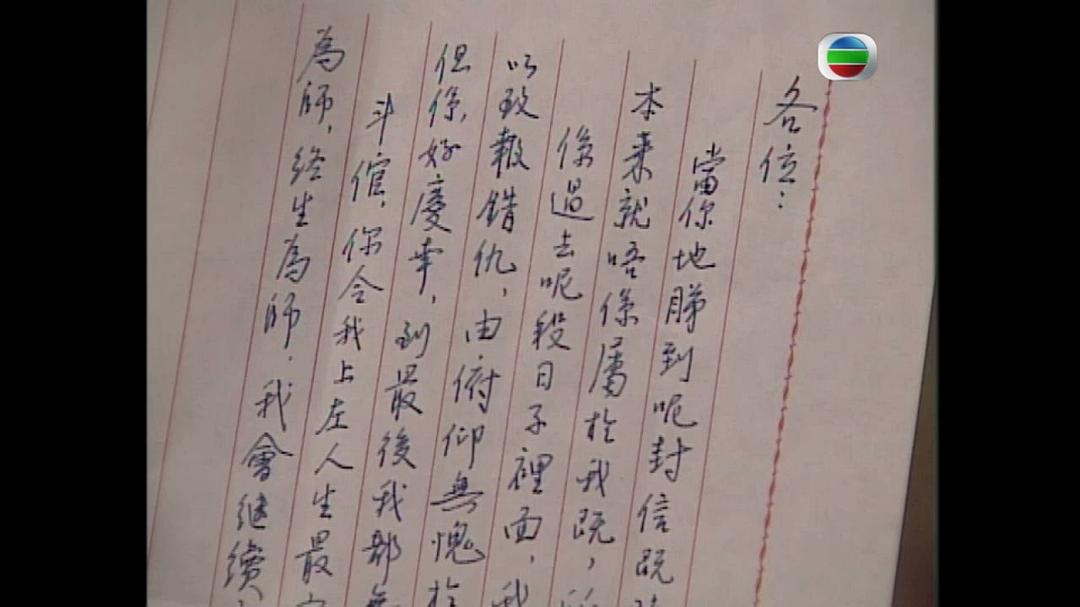 各位：
當你地睇到呢封信既
本來就唔係屬於我既，
係過去呢段日子裡面，我
以致報錯仇，由俯仰無愧於
但係，好慶幸，到最後我都
斗倌，你令我上左人生最
為師，終生為師，我會继續